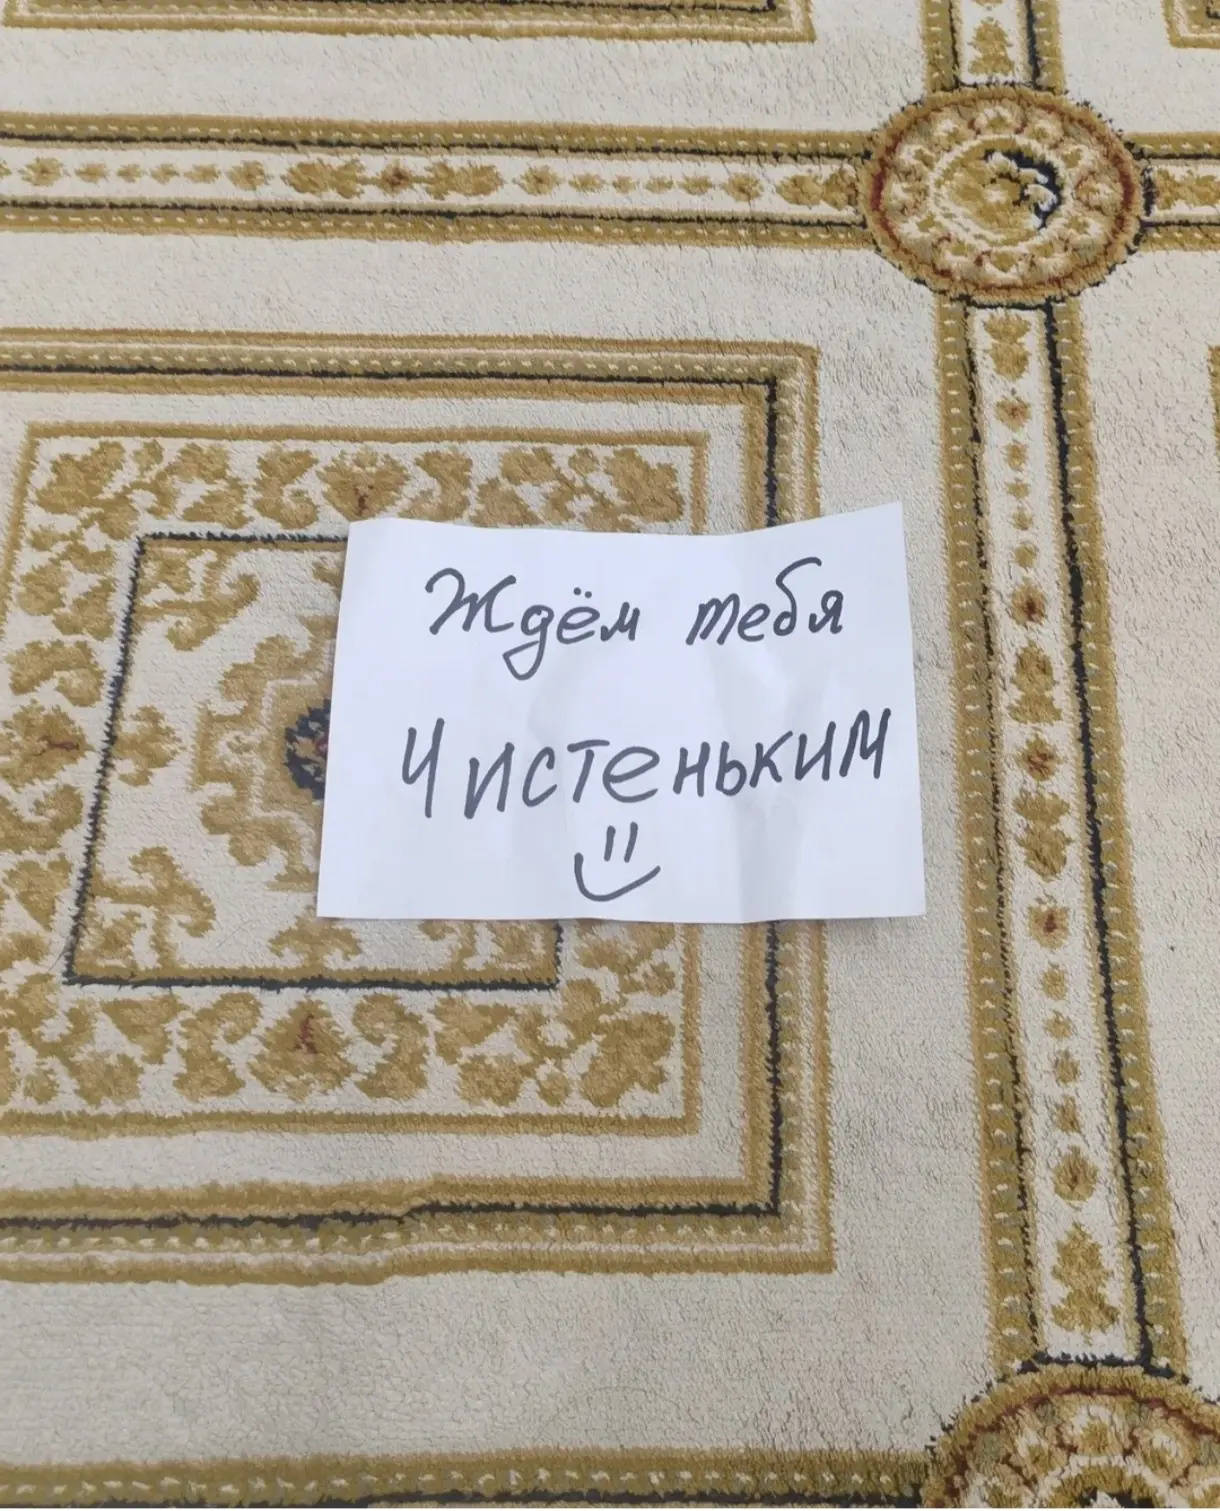 Ждём тебя
Чистеньким